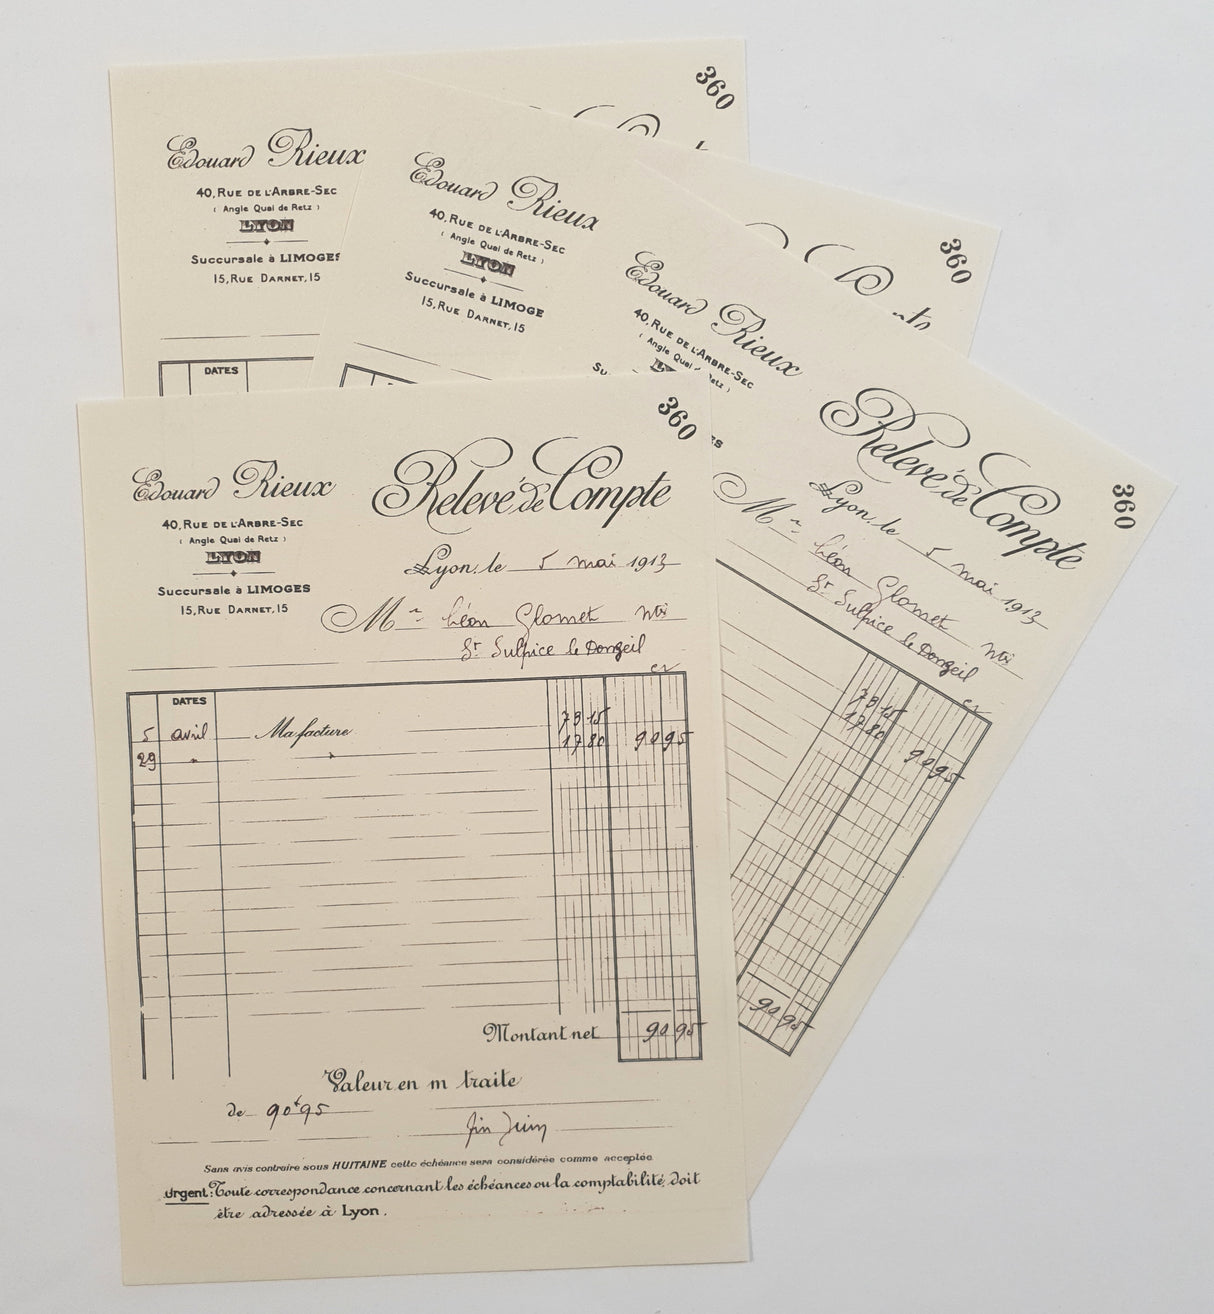 360
Edouard Rieux
40, RUE DE L'ARBRE-SEC
( Angle Quai de Retz )
LYON
Succursale à LIMOGES
15, RUE DARNET, 15
DATES
360
Edouard Rieux
40, RUE DE L'ARBRE-SEC
( Angle Quai de Retz )
LYON
Succursale à LIMOGE
15, RUE DARNET, 15
360
Edouard Rieux
40, RUE DE L'ARBRE-SEC
Relevé de Compte
Lyon, le 5 mai 1913
Mr Léon Glomet
St Sulpice le Donzeil
79 15
17 80
90 95
90 95
360
Edouard Rieux
Relevé de Compte
40, RUE DE L'ARBRE-SEC
( Angle Quai de Retz )
LYON
Succursale à LIMOGES
15, RUE DARNET, 15
Lyon, le 5 mai 1913
Mr Léon Glomet
St Sulpice le Donzeil
DATES
5 avril Ma facture 73 15
29 " " 17 80 90 95
Montant net 90 95
Valeur en m traite
de 90f95
fin Juin
Sans avis contraire sous HUITAINE cette échéance sera considérée comme acceptée
Urgent: Toute correspondance concernant les échéances ou la comptabilité, doit
être adressée à Lyon.